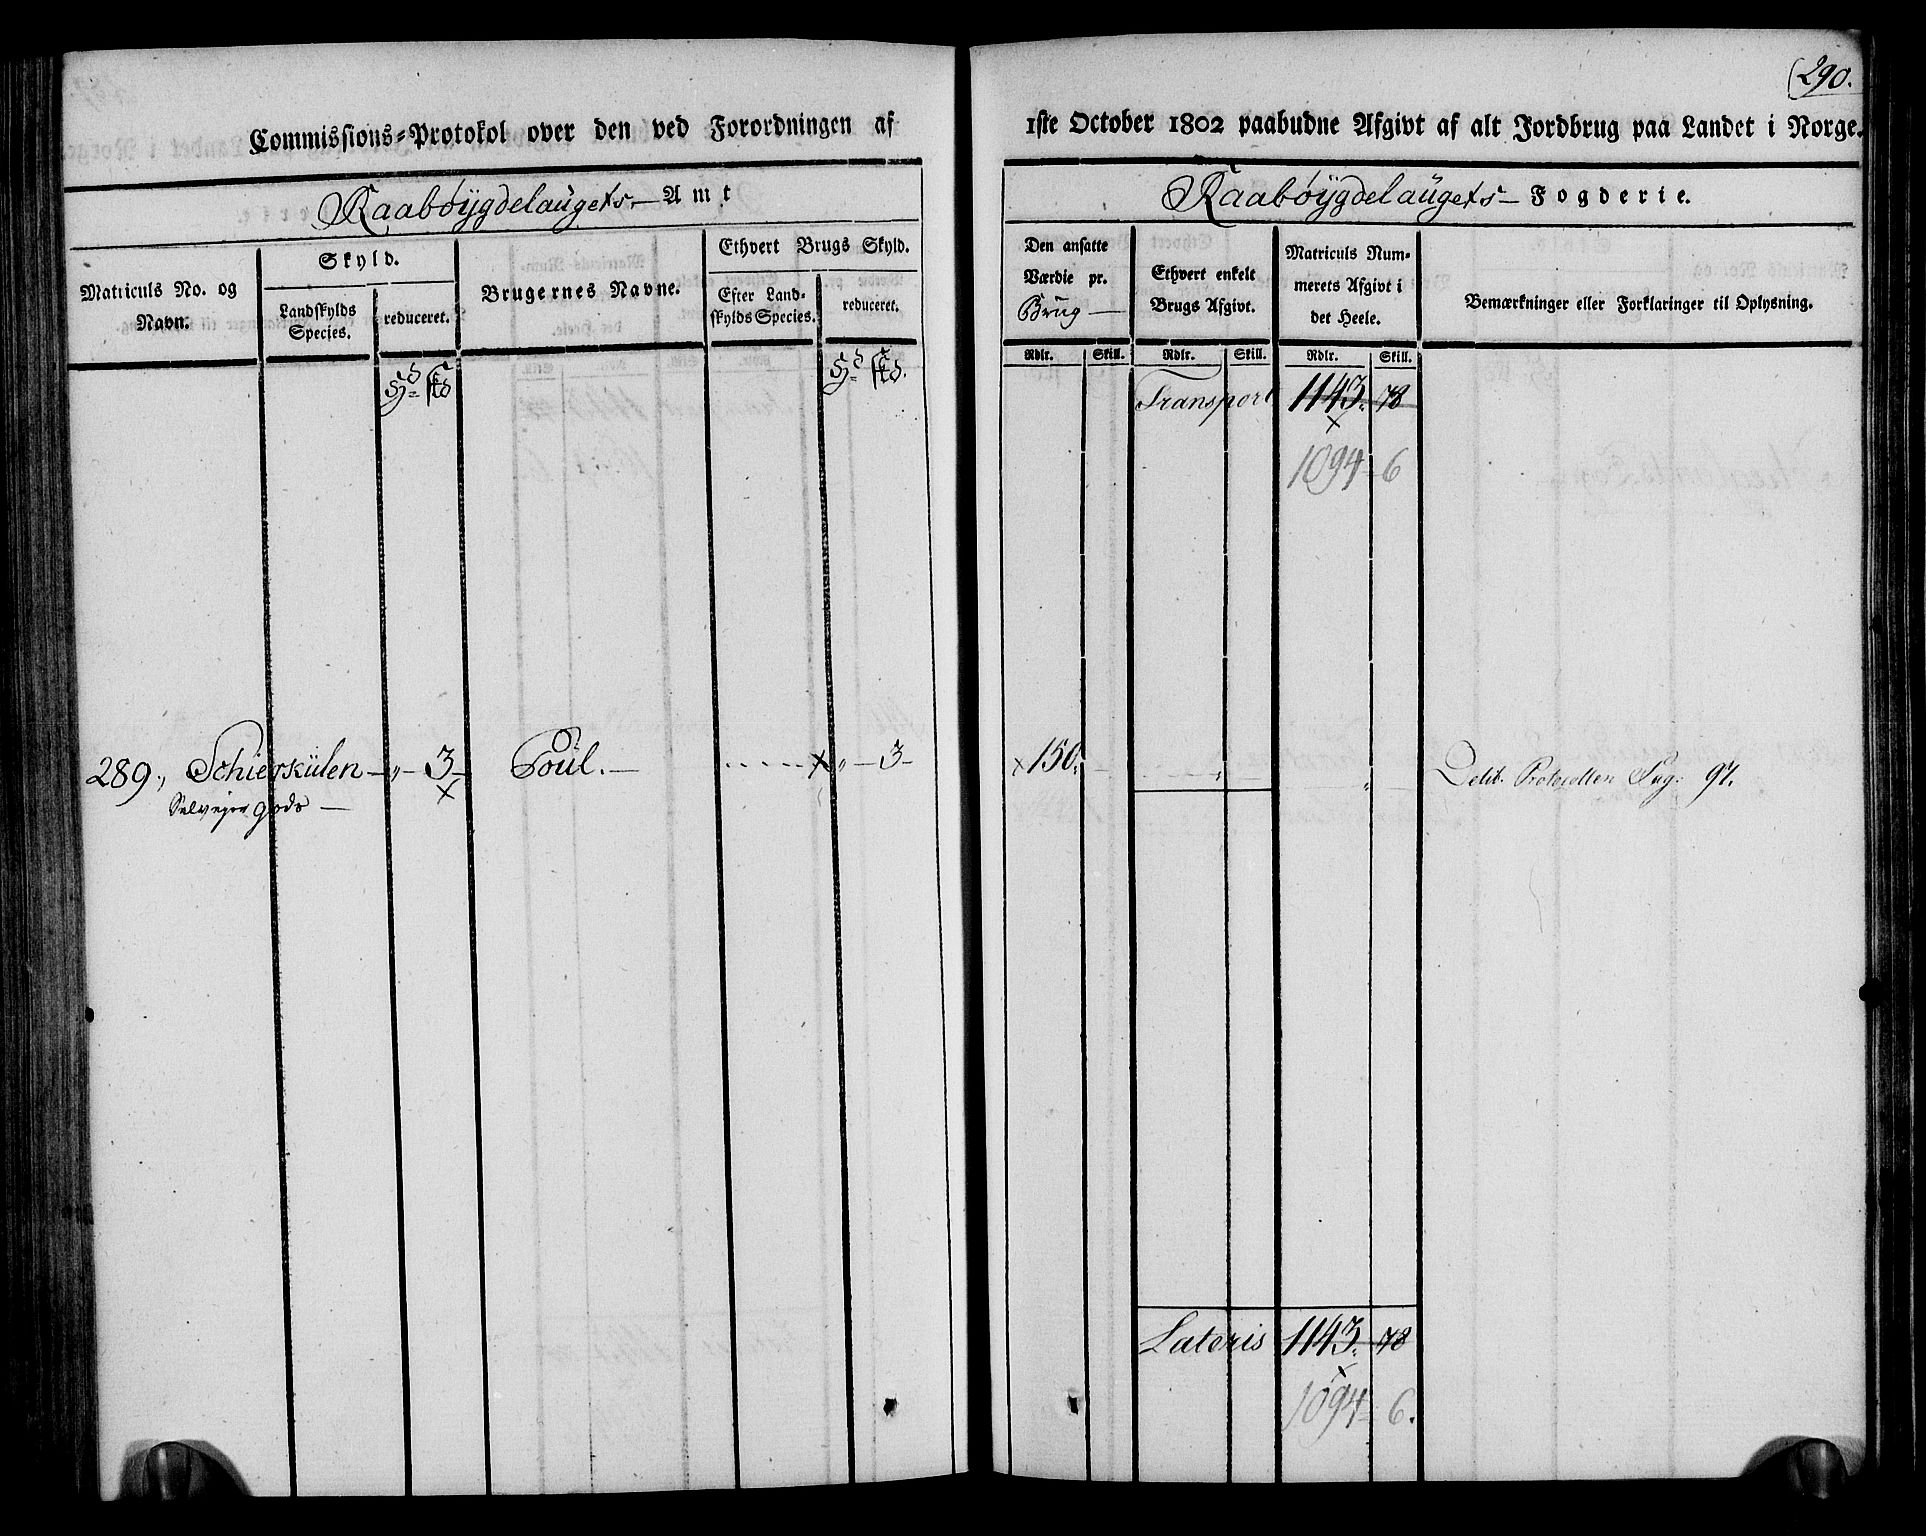 290.
Commissions-Protokol over den ved Forordningen af
1ste October 1802 paabudne Afgivt af alt Jordbrug paa Landet i Norge.
Raabøygdelaugets Amt
Raabøygdelaugets Fogderie.
Matriculs No. og Navn.
Skyld.
Landskylds Species.
reduceret.
Brugernes Navne.
Ethvert Brugs Skyld.
Efter Landskylds Species.
reduceret.
Den ansatte Værdie pr. Brug
Ethvert enkelt Brugs Afgivt.
Matriculs Nummerets Afgivt i det Heele.
Bemærkninger eller Forklaringer til Oplysning.
Rdlr. Skill. Rdlr. Skill. Rdlr. Skill.
Transport 1143. 78
1094 - 6
289., Schierkülen - „ - 3 - Poul. - x „ - 3 - x 150. „ „ Delib. Protocollen Pag: 97.
Selvejer gods -
Lateris 1143. 78
1094 - 6.